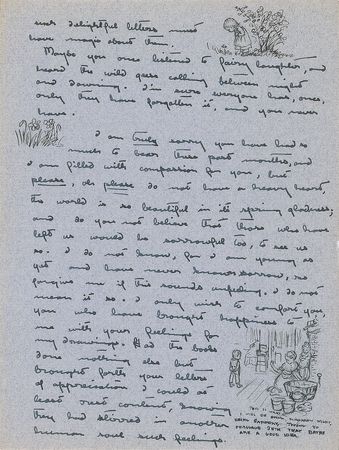 such delightful letters must
have magic about them.
Maybe you once listened to fairy laughter, and
heard the wild geese calling between night
and dawning. I'm sure everyone has, once,
only they have forgotten it, and you never
have.
I am truly sorry you have had so
much to bear these past months, and
I am filled with compassion for you, but
please, oh please do not have a heavy heart,
the world is so beautiful in its spring gladness;
and do you not believe that those who have
left us would be sorrowful too, to see us
so. I do not know, for I am young as
yet and have never known sorrow, so
forgive me if this sounds unfeeling. I do not
mean it so. I only wish to comfort you,
you who have brought happiness to
me with your feelings for
my drawings. Had the books
done nothing else but
brought forth your letters
of appreciation I could at
least rest content, knowing
they had stirred in another
human soul such feelings.
TRYING TO
PERSUADE SETH THAT BATHS
ARE A GOOD IDEA